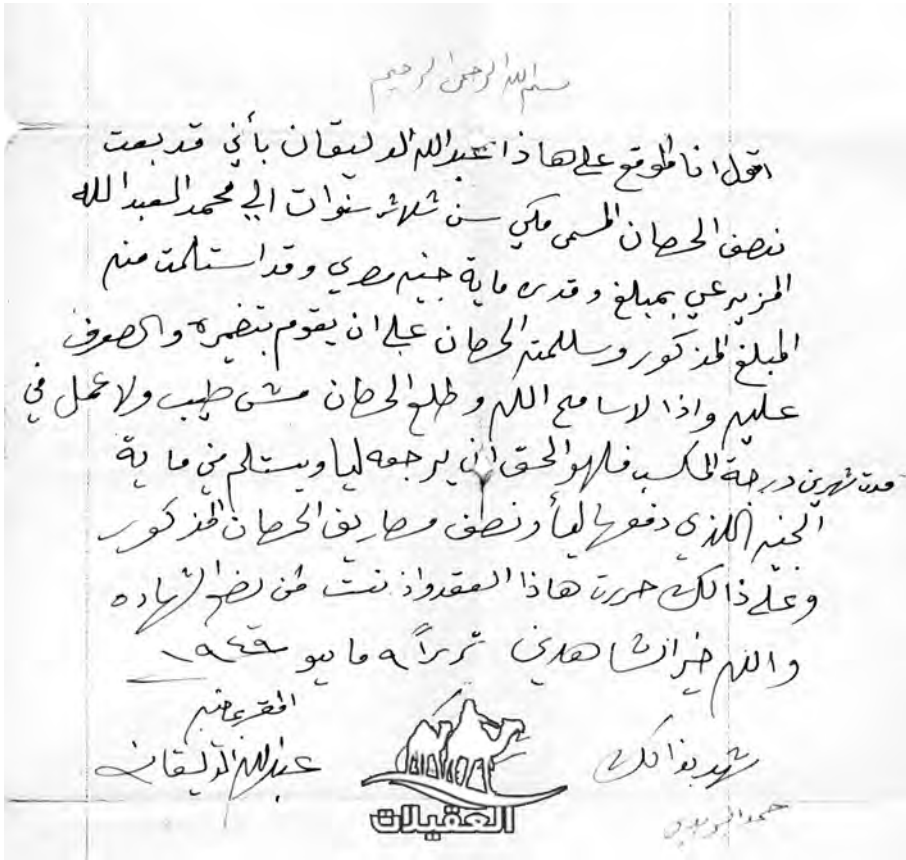 بسم الله الرحمن الرحيم
اقول انا الموقع على هاذا عبدالله الدليقان بأني قد بعت
نصف الحصان المسمى مكي سن ثلاث سنوات الي محمد العبدالله
المزيرعي بمبلغ وقدره ماية جنيه مصري وقد استلمت منه
المبلغ المذكور وسللمته الحصان على ان يقوم بتضميره والصرف
عليه واذا لاسامح الله وطلع الحصان مشى طيب ولا عمل في
مدت شهرين درجة المكسب فلهو الحق اني يرجعه ليا ويستلم مني ماية
الجنيه اللذي دفعها ليا ونصف مصاريف الحصان المذكور
وعلى ذالك حررت هاذا العقد واذنت لمن يضع الشهاده
والله خير الشاهدين تحريراً ٩ مايو ١٩٤٩
المقر بما فيه
شهد بذالك عبدالله الدليقان
حمد
العقيلات